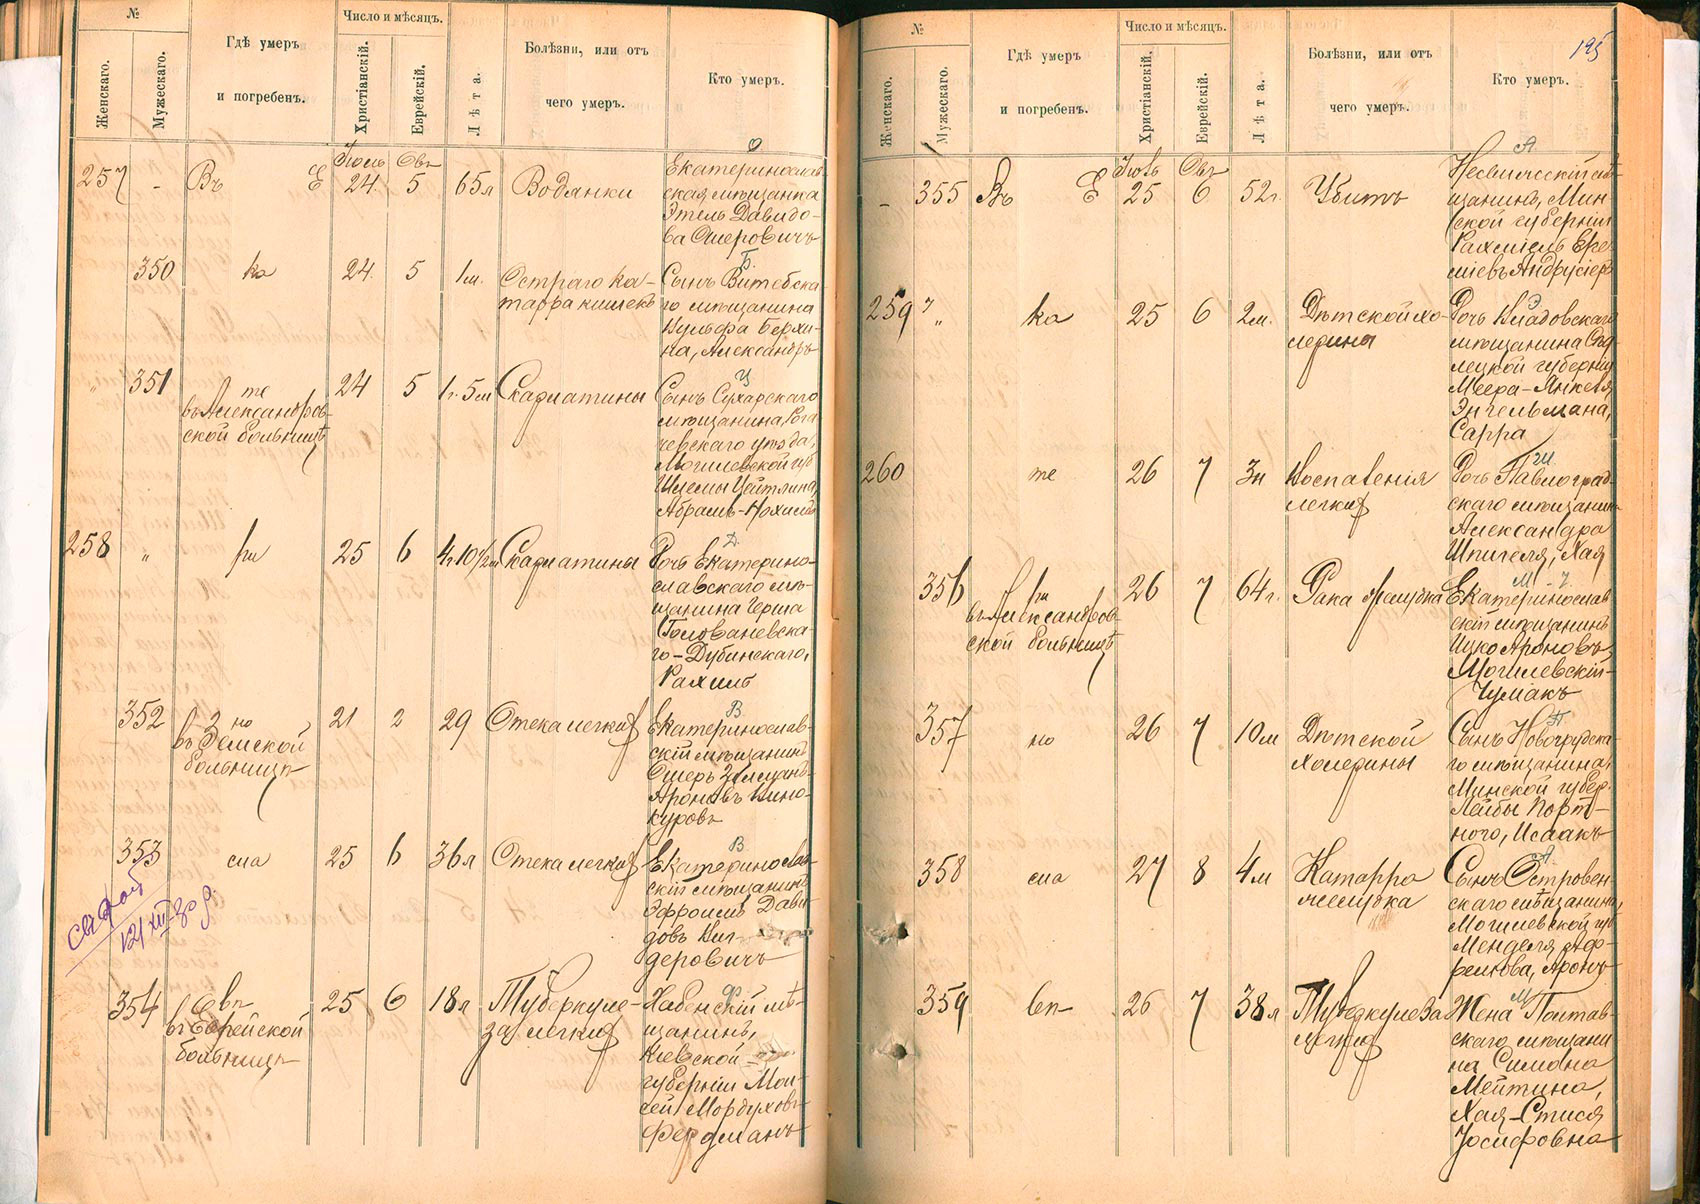 №
Женскаго.
Мужескаго.
Гдѣ умеръ
и погребенъ.
Число и мѣсяцъ.
Христіанскій.
Еврейскій.
Лѣта.
Болѣзни, или отъ
чего умеръ.
Кто умеръ.
О
257 - Въ Е
Іюль
24 5 65л
Водянки
Екатеринослав-
ская мѣщанка
Этель Давидо-
ва Ошеровичъ
Б.
350 ка 24. 5 1м.
Остраго ка-
тарра кишекъ
Сынъ Витебска-
го мѣщанина
Вульфа Берхи-
на, Александръ
Ц
" 351 те 24 5 1г. 5м
въ Александров-
ской больницѣ
Скарлатины
Сынъ Сухарскаго
мѣщанина, Рога-
чевскаго уѣзда,
Могилевской губ
Цейтлина,
Абрамъ-Нохимъ
Д
258 " ри 25 6 4г 10½м
Скарлатины
Дочь Екатерино-
славскаго мѣ-
щанина Герша
Голованевска-
го-Дубинскаго,
Рахиль
В
352 но 21 2 29
въ Земской
больницѣ
Отека легкихъ
Екатеринослав-
скій мѣщанинъ
Ошеръ Залманъ
Ароновъ Вино-
куровъ
В
353 сла 25 6 36л
Отека легкихъ
Екатеринослав-
скій мѣщанинъ
Эфроимъ Дави-
довъ Виг-
деровичъ
12/XII-30 р.
Ф
354 въ 25 6 18л
въ Еврейской
больницѣ
Туберкуле-
за легкихъ
мѣ-
щанинъ,
Кіевской
губерніи Мои-
сей Мордуховъ
Фердманъ
195
№
Женскаго.
Мужескаго.
Гдѣ умеръ
и погребенъ.
Число и мѣсяцъ.
Христіанскій.
Еврейскій.
Лѣта.
Болѣзни, или отъ
чего умеръ.
Кто умеръ.
А
- 355 Въ Е
Іюль
25 6 52г.
Убитъ
Несвижскій мѣ-
щанинъ, Мин-
ской губерніи
Рахміель
Э
259 " ка 25 6 2м.
Дѣтской хо-
лерины
Дочь Влодовскаго
мѣщанина Сѣд-
лецкой губерніи
Меера-Янкеля
Энгельмана,
Сарра
Ш
260 те 26 7 3н
Воспаленія
легкихъ
Дочь Павлоград-
скаго мѣщанина
Александра
Шпигеля, Хая
М - Ч
356 ри 26 7 64г.
въ Александров-
ской больницѣ
Рака желудка
Екатеринослав
скій мѣщанинъ
Ицко Ароновъ
Могилевскій-
Чумакъ
П
357 но 26 7 10м
Дѣтской
холерины
Сынъ Новогрудска-
го мѣщанина,
Минской губер.
Лейбы Порт-
ного, Исаакъ
А
358 сла 27 8 4м
Катарра
желудка
Сынъ Островен-
скаго мѣщанина,
Могилевской губ
Менделя Аф-
ремова, Аронъ
М
359 въ 26 7 38л
Туберкулеза
легкихъ
Жена Полтав-
скаго мѣщани
на Симона
Мейтина,
Хая-Стися
Іосифовна